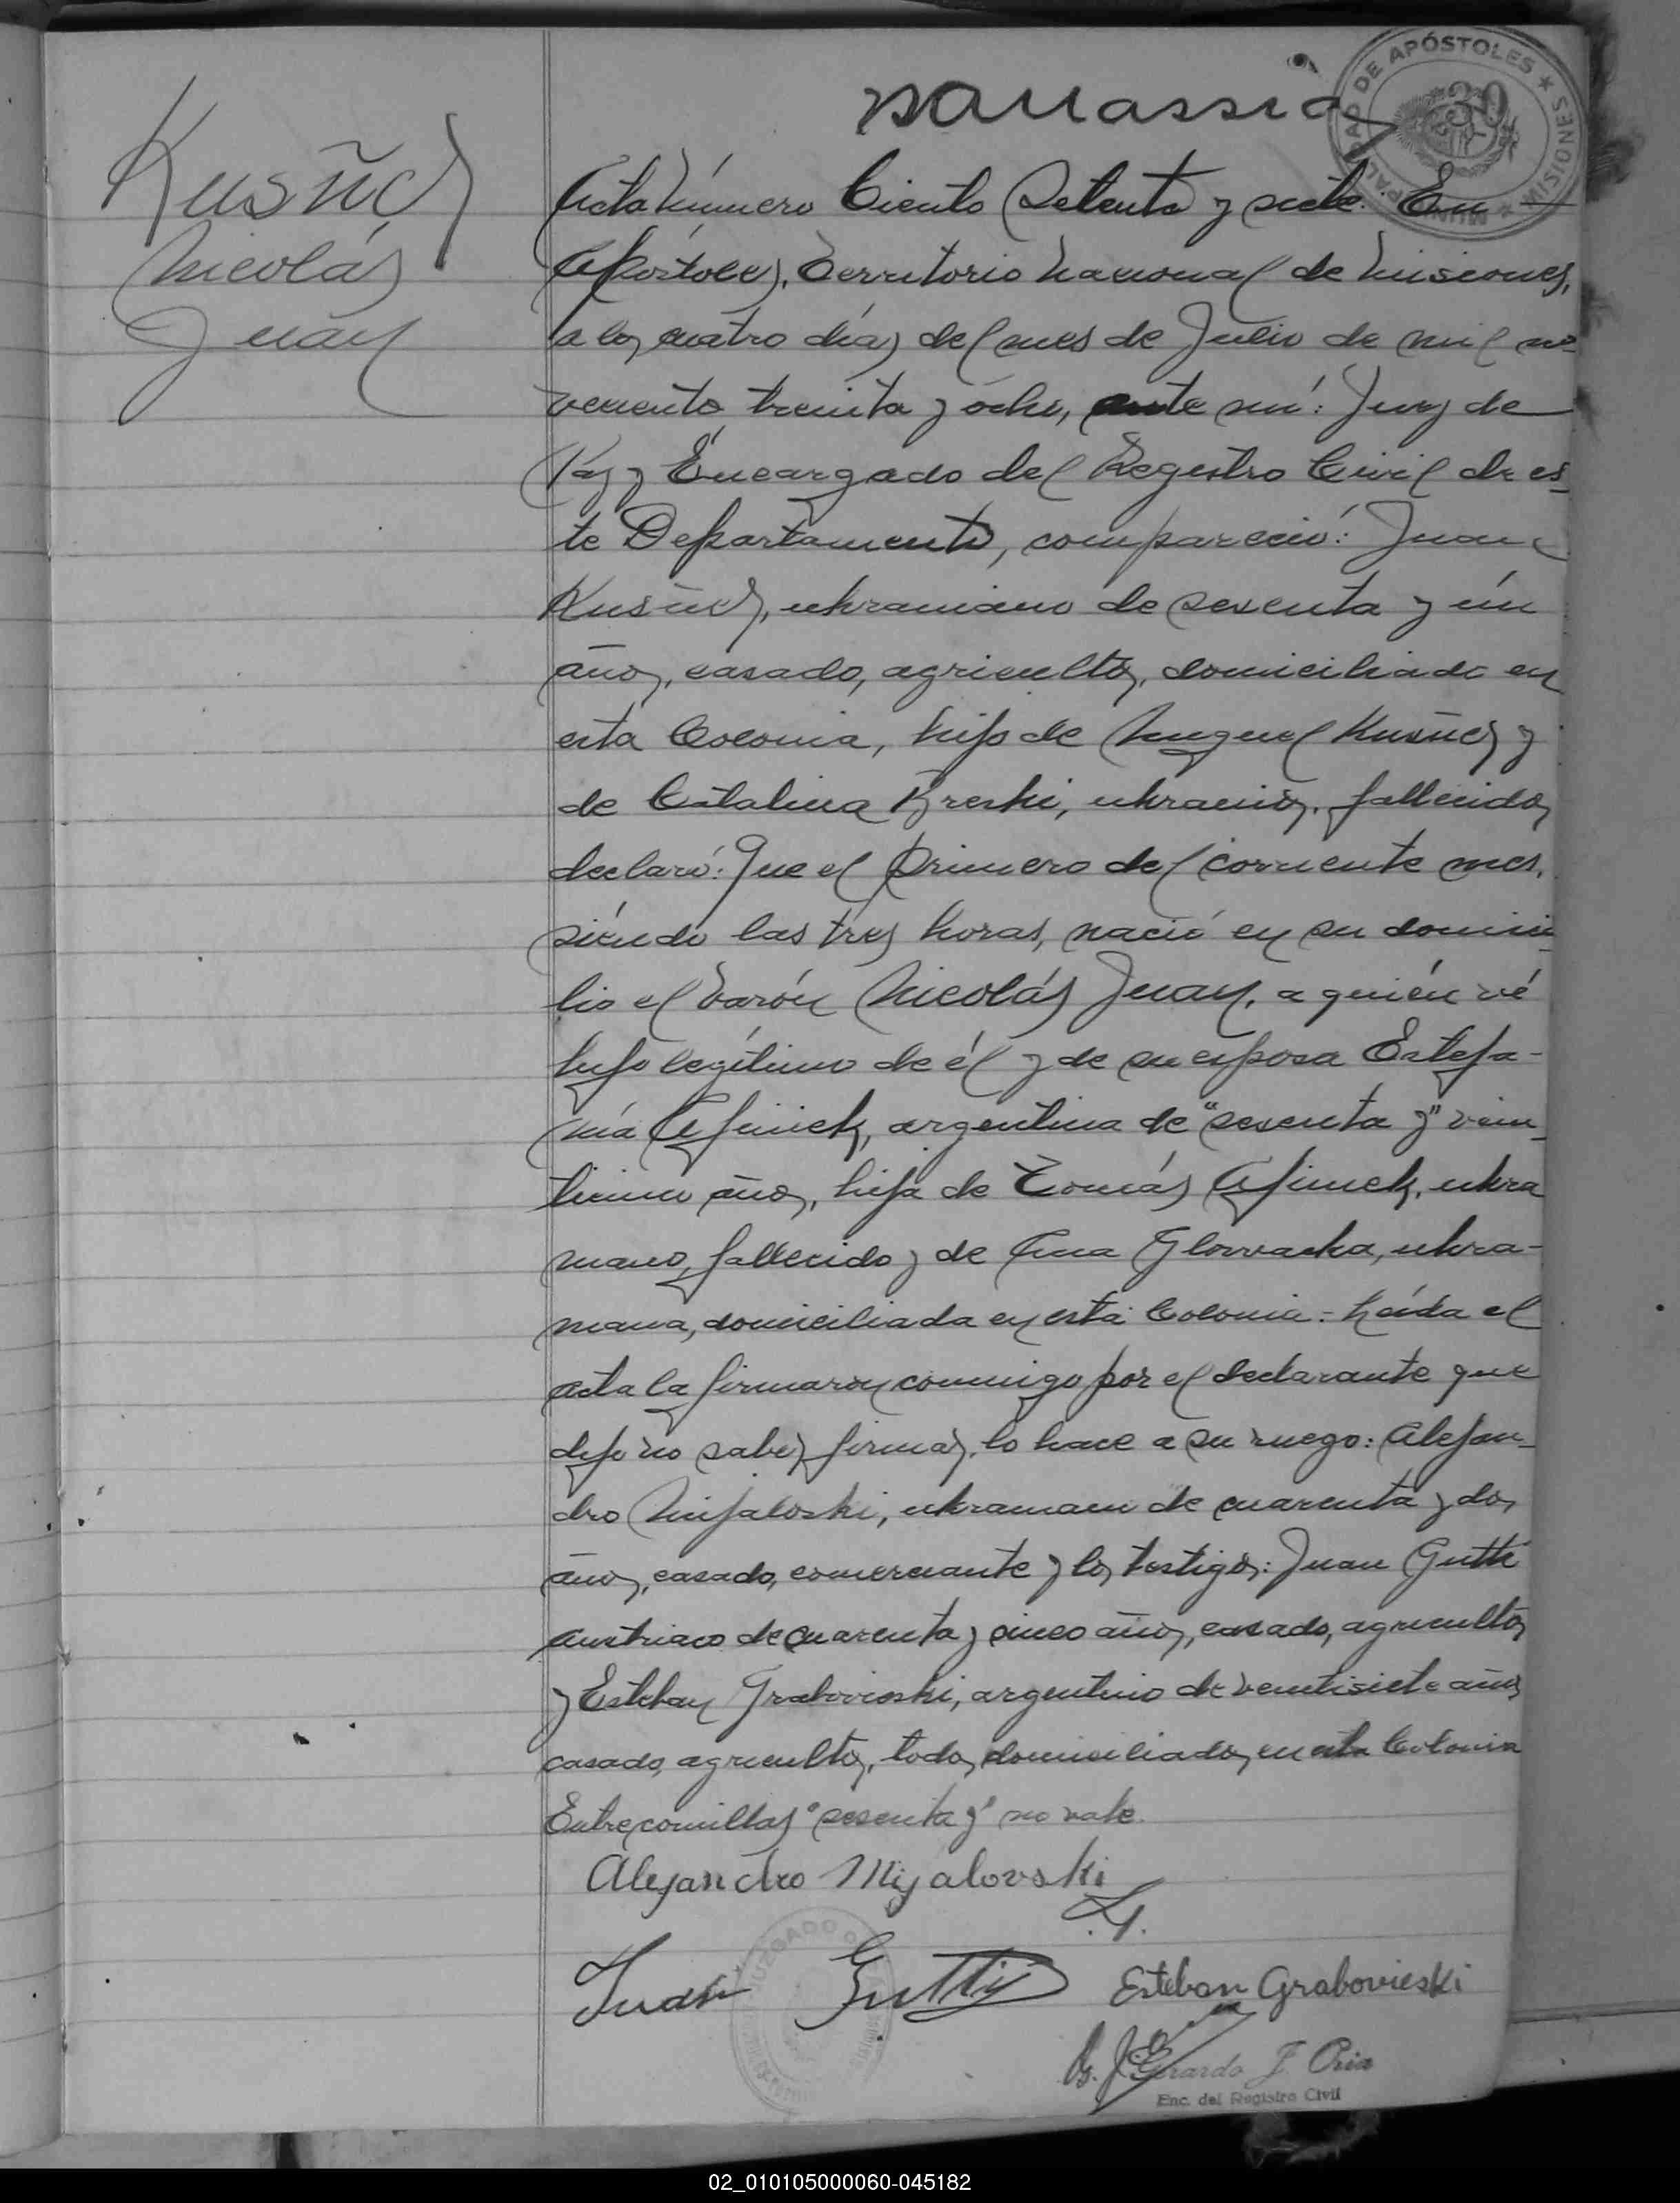 Kusñer
Nicolás
Juan
MUNICIPALIDAD DE APÓSTOLES * MISIONES *
30
Acta Número Ciento Setenta y siete. En
Apóstoles, Territorio Nacional de Misiones,
a los cuatro días del mes de Julio de mil no-
veciento treinta y ocho, ante mí: Juez de
Paz y Encargado del Registro Civil de es-
te Departamento, compareció: Juan
Kusñer, ukraniano de sesenta y ún
años, casado, agricultor, domiciliado en
esta Colonia, hijo de Miguel Kusñer y
de Catalina Breski, ukranios, fallecidos
declaró: Que el primero del corriente mes,
siéndo las trés horas, nació en su domici
lio el varón Nicolás Juan, a quién vé
hijo legítimo de él y de su esposa Estefa-
nía Afinick, argentina de "sesenta y" vein-
tiunu años, hija de Tomás Afinick, ukra
niano, fallecido y de Ana Glowacka, ukra-
niana, domiciliada en esta Colonia = Leída el
acta la firmaron conmigo por el declarante que
dijo no saber firmar, lo hace a su ruego: Alejan-
dro Mijaloski, ukraniano de cuarenta y dos
años, casado, comerciante y los testigos: Juan Gutti
austriaco de cuarenta y cinco años, casado, agricultor
y Esteban Grabovieski, argentino de veintisiete años
casado, agricultor, todos domiciliados en esta Colonia
Entre comillas "sesenta y" no vale.
Alejandro Mijalovski
Juan Gutti Esteban Grabovieski
JUZGADO
Gerardo J. Oria
Enc. del Registro Civil
02_010105000060-045182